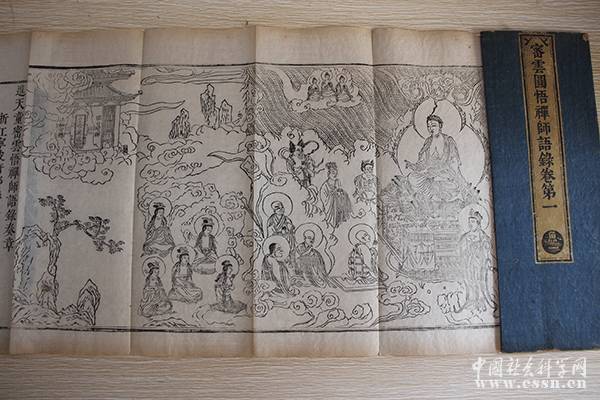 密雲圓悟禪師語錄卷第一
進天童密雲悟禪師語錄奏章
浙江寧波府
中国社会科学网
www.cssn.cn